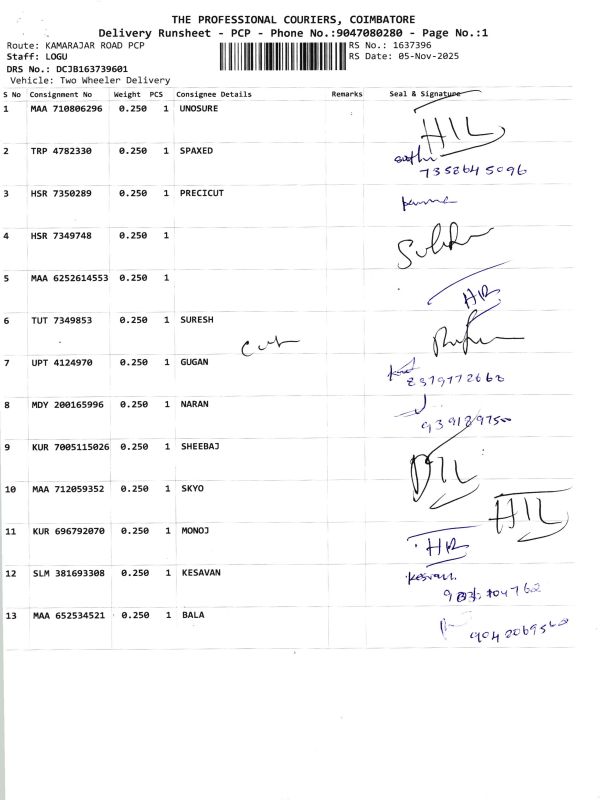 THE PROFESSIONAL COURIERS, COIMBATORE
Delivery Runsheet - PCP - Phone No.:9047080280 - Page No.:1
Route: KAMARAJAR ROAD PCP RS No.: 1637396
Staff: LOGU RS Date: 05-Nov-2025
DRS No.: DCJB163739601
Vehicle: Two Wheeler Delivery
S No Consignment No Weight PCS Consignee Details Remarks Seal & Signature
1 MAA 710806296 0.250 1 UNOSURE HIL
2 TRP 4782330 0.250 1 SPAXED
7358645096
3 HSR 7350289 0.250 1 PRECICUT
4 HSR 7349748 0.250 1
5 MAA 6252614553 0.250 1
6 TUT 7349853 0.250 1 SURESH
7 UPT 4124970 0.250 1 GUGAN
8379772662
8 MDY 200165996 0.250 1 NARAN
9 KUR 7005115026 0.250 1 SHEEBAJ
10 MAA 712059352 0.250 1 SKYO HIL
11 KUR 696792070 0.250 1 MONOJ
12 SLM 381693308 0.250 1 KESAVAN kesvan.
13 MAA 652534521 0.250 1 BALA